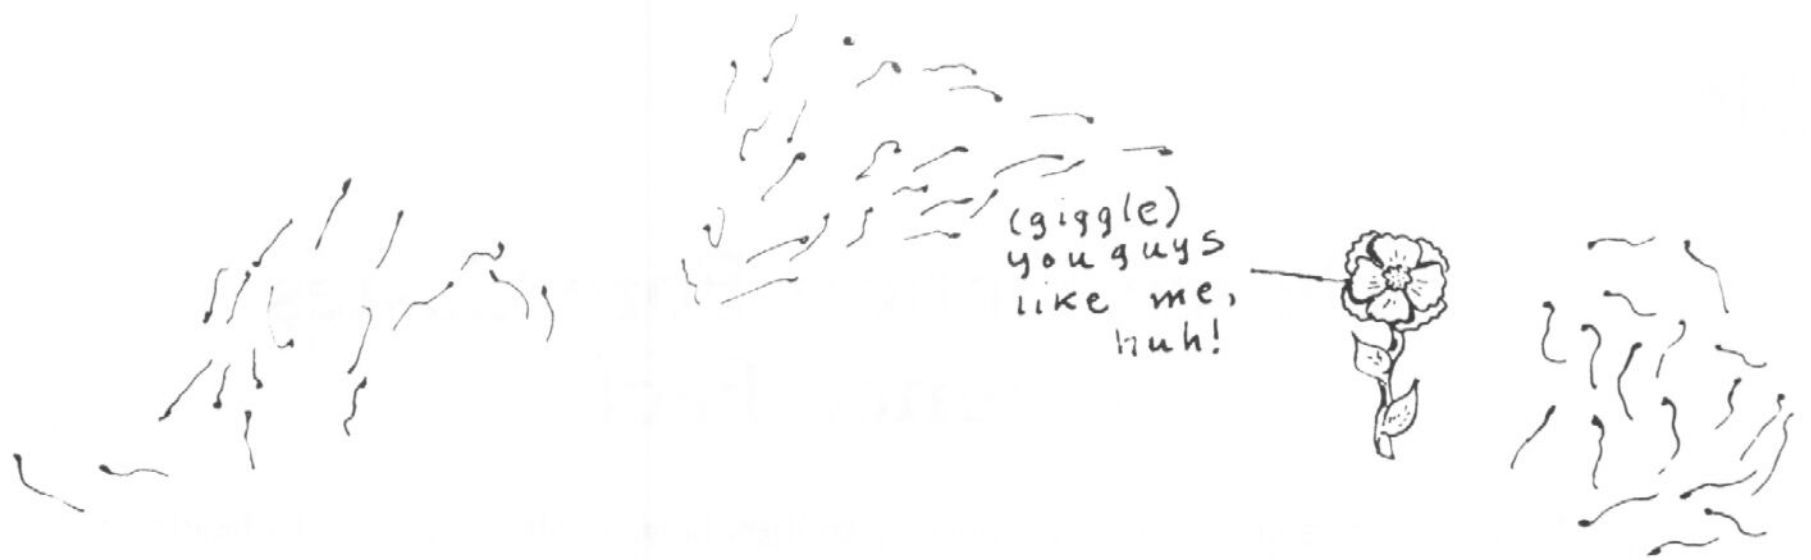 (giggle)
you guys
like me,
huh!